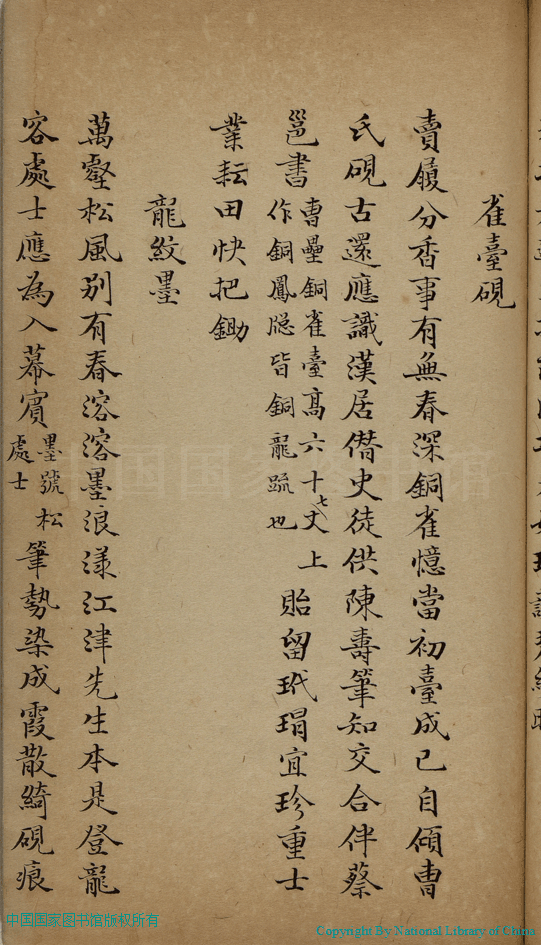 雀臺硯
賣履分香事有無春深銅雀憶當初臺成已自傾曹
氏硯古還應識漢居僭史徒供陳壽筆知交合伴蔡
邕書
曹壘銅雀臺高六十七丈上
作銅鳳牕皆銅龍疏也
貽留玳瑁宜珍重士
業耘田快把鋤
龍紋墨
萬壑松風別有春溶溶墨浪漾江津先生本是登龍
容處士應為入幕賓
墨號松
處士
筆勢染成霞散綺硯痕
中国国家图书馆
中国国家图书馆版权所有
Copyright By National Library of China